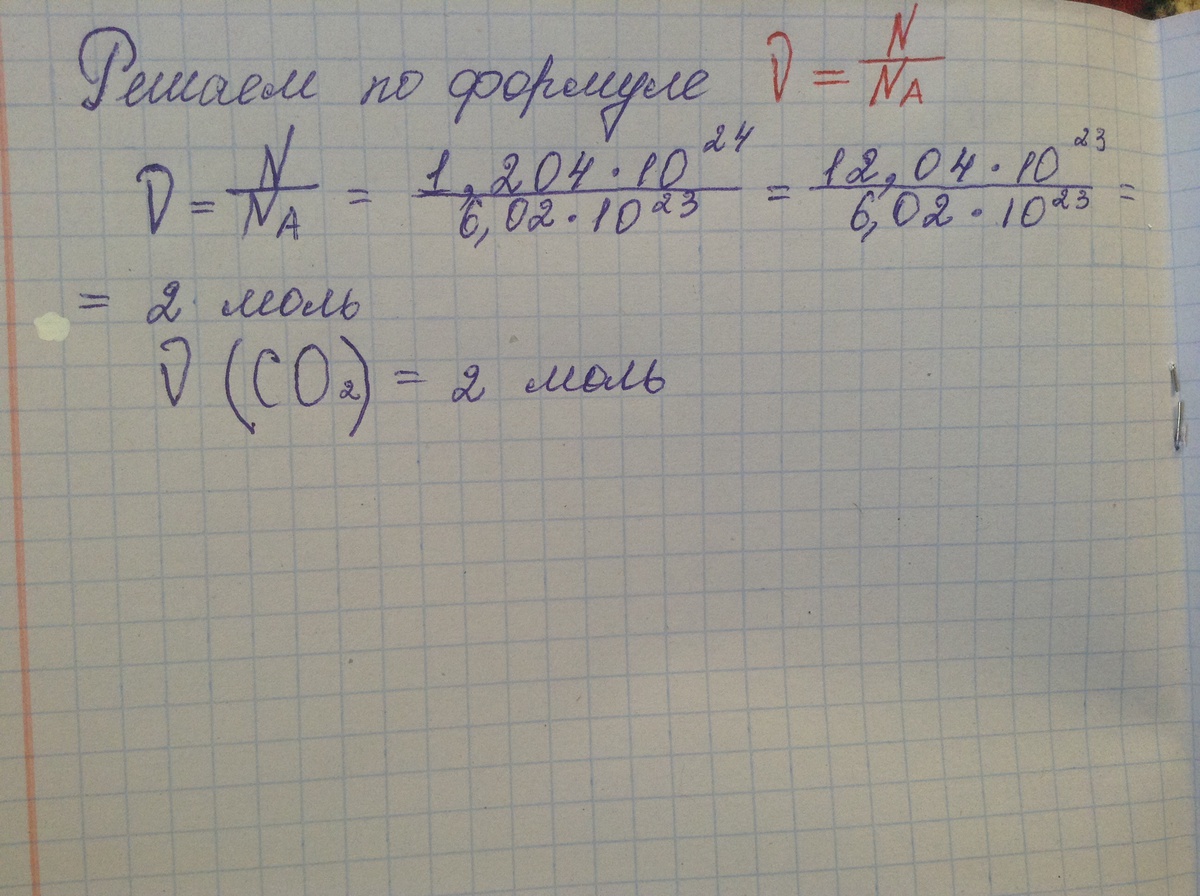 Решаем по формуле ν = N/N_A
ν = N/N_A = 1,204·10²⁴/6,02·10²³ = 12,04·10²³/6,02·10²³ =
= 2 моль
ν (CO₂) = 2 моль